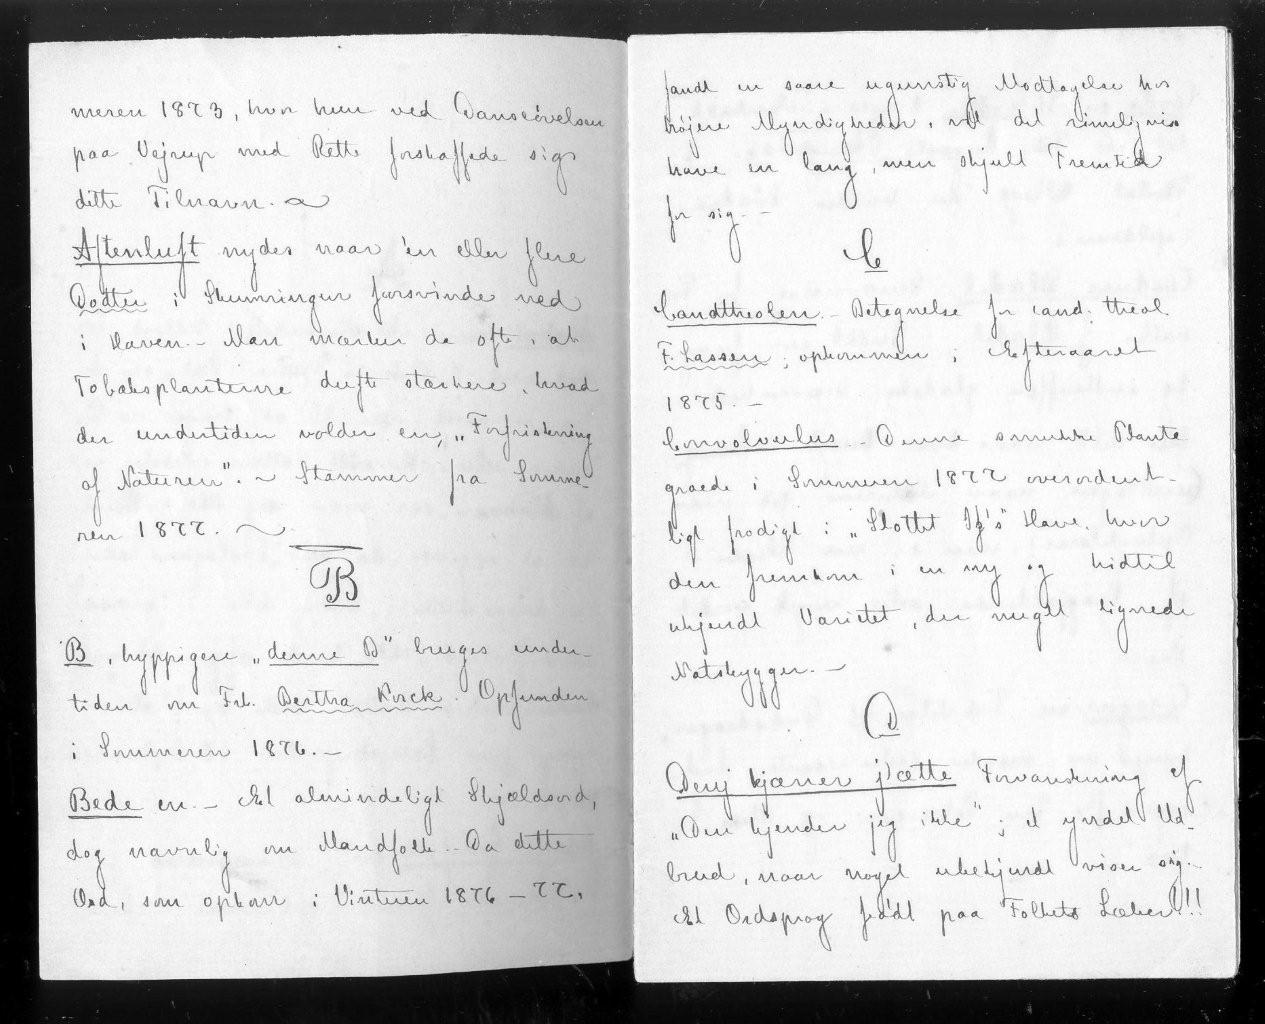 meren 1873, hvor hun ved Danseövelsen
paa Vejrup med Rette forskaffede sig
dette Tilnavn.
Aftenluft nydes naar én eller flere
Dødtre i Skumringen forsvinde ned
i Haven. - Man mærker da ofte, at
Tobaksplanterne dufte stærkere, hvad
der undertiden volder en „Forfriskning
af Naturen". ~ Stammer fra Somme-
ren 1877. ~
B
B, hyppigere „denne B" bruges under-
tiden om Frk. Bertha Krick. Opfunden
i Sommeren 1876. -
Bede en. - Et almindeligt Skjældsord,
dog navnlig om Mandfolk. - Da dette
Ord, som opkom i Vinteren 1876 - 77,
fandt en saare ugunstig Modtagelse hos
højere Myndigheder, vil det rimeligvis
have en lang, men skjult Fremtid
for sig. -
C
Candtheolen. - Betegnelse for cand. theol.
F. Lassen; opkommen i Efteraaret
1875. -
Convolvulus - Denne smukke Plante
groede i Sommeren 1877 overordent-
ligt frodigt i „Slottet Have, hvor
den fremkom i en ny og hidtil
ukjendt Varietet, der meget lignede
Natskygger. -
D
Denj kjæner jættte Forvanskning af
„Den kjender jeg ikke"; et yndet Ud-
brud, naar noget ubekjendt viser sig. -
Et Ordsprog født paa Folkets Læber!!!